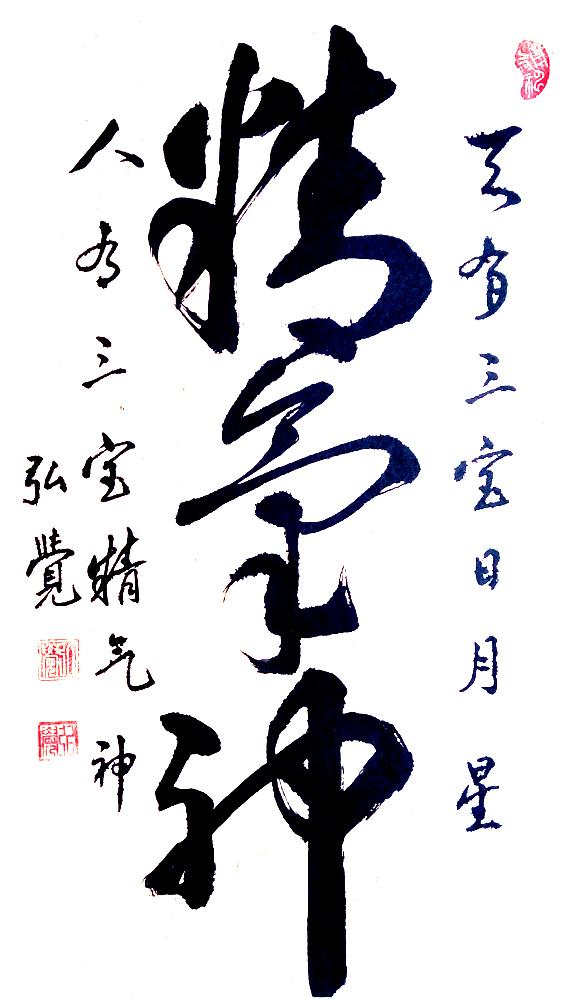 天有三宝日月星
精氣神
人有三宝精气神
弘覺